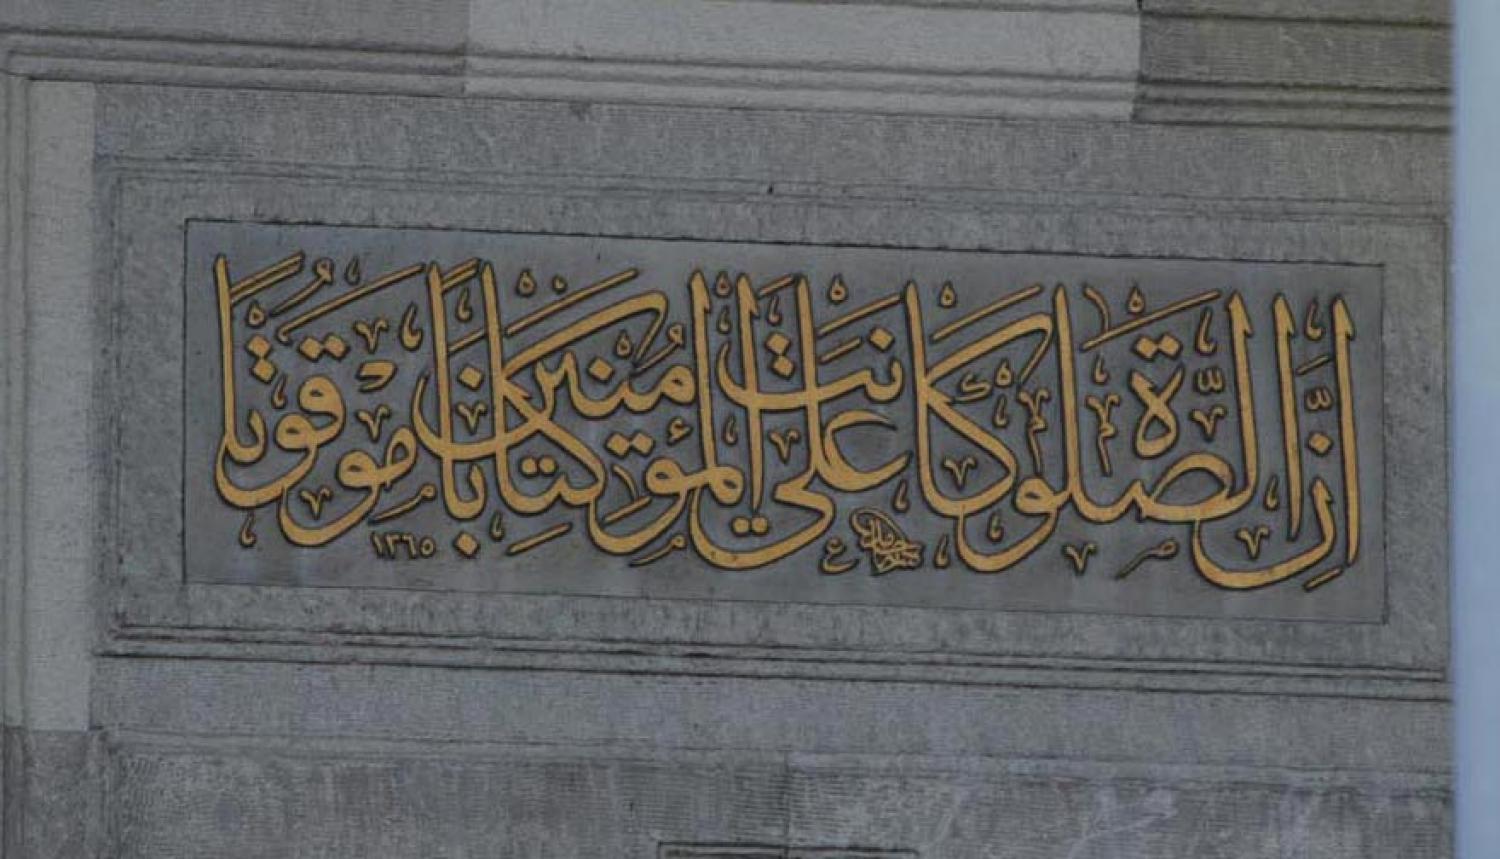 إِنَّ الصَّلٰوةَ كَانَتْ عَلَى الْمُؤْمِنِينَ كِتَابًا مَوْقُوتًا
١٣٦٥